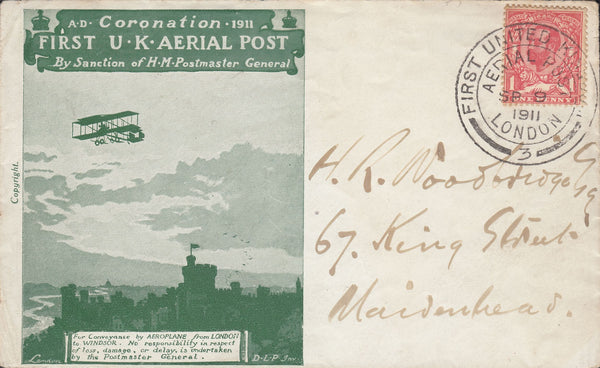 A·D· Coronation ·1911
FIRST U·K·AERIAL POST
By Sanction of H·M·Postmaster General
Copyright.
For Conveyance by AEROPLANE from LONDON
to WINDSOR. No responsibility in respect
of loss, damage, or delay, is undertaken
by the Postmaster General.
London
D·L·P Inv.
FIRST UNITED K
AERIAL POST
SP 9
1911
LONDON
3
ONE PENNY
H. R. Woodbridge Esq
67. King Street
Maidenhead.